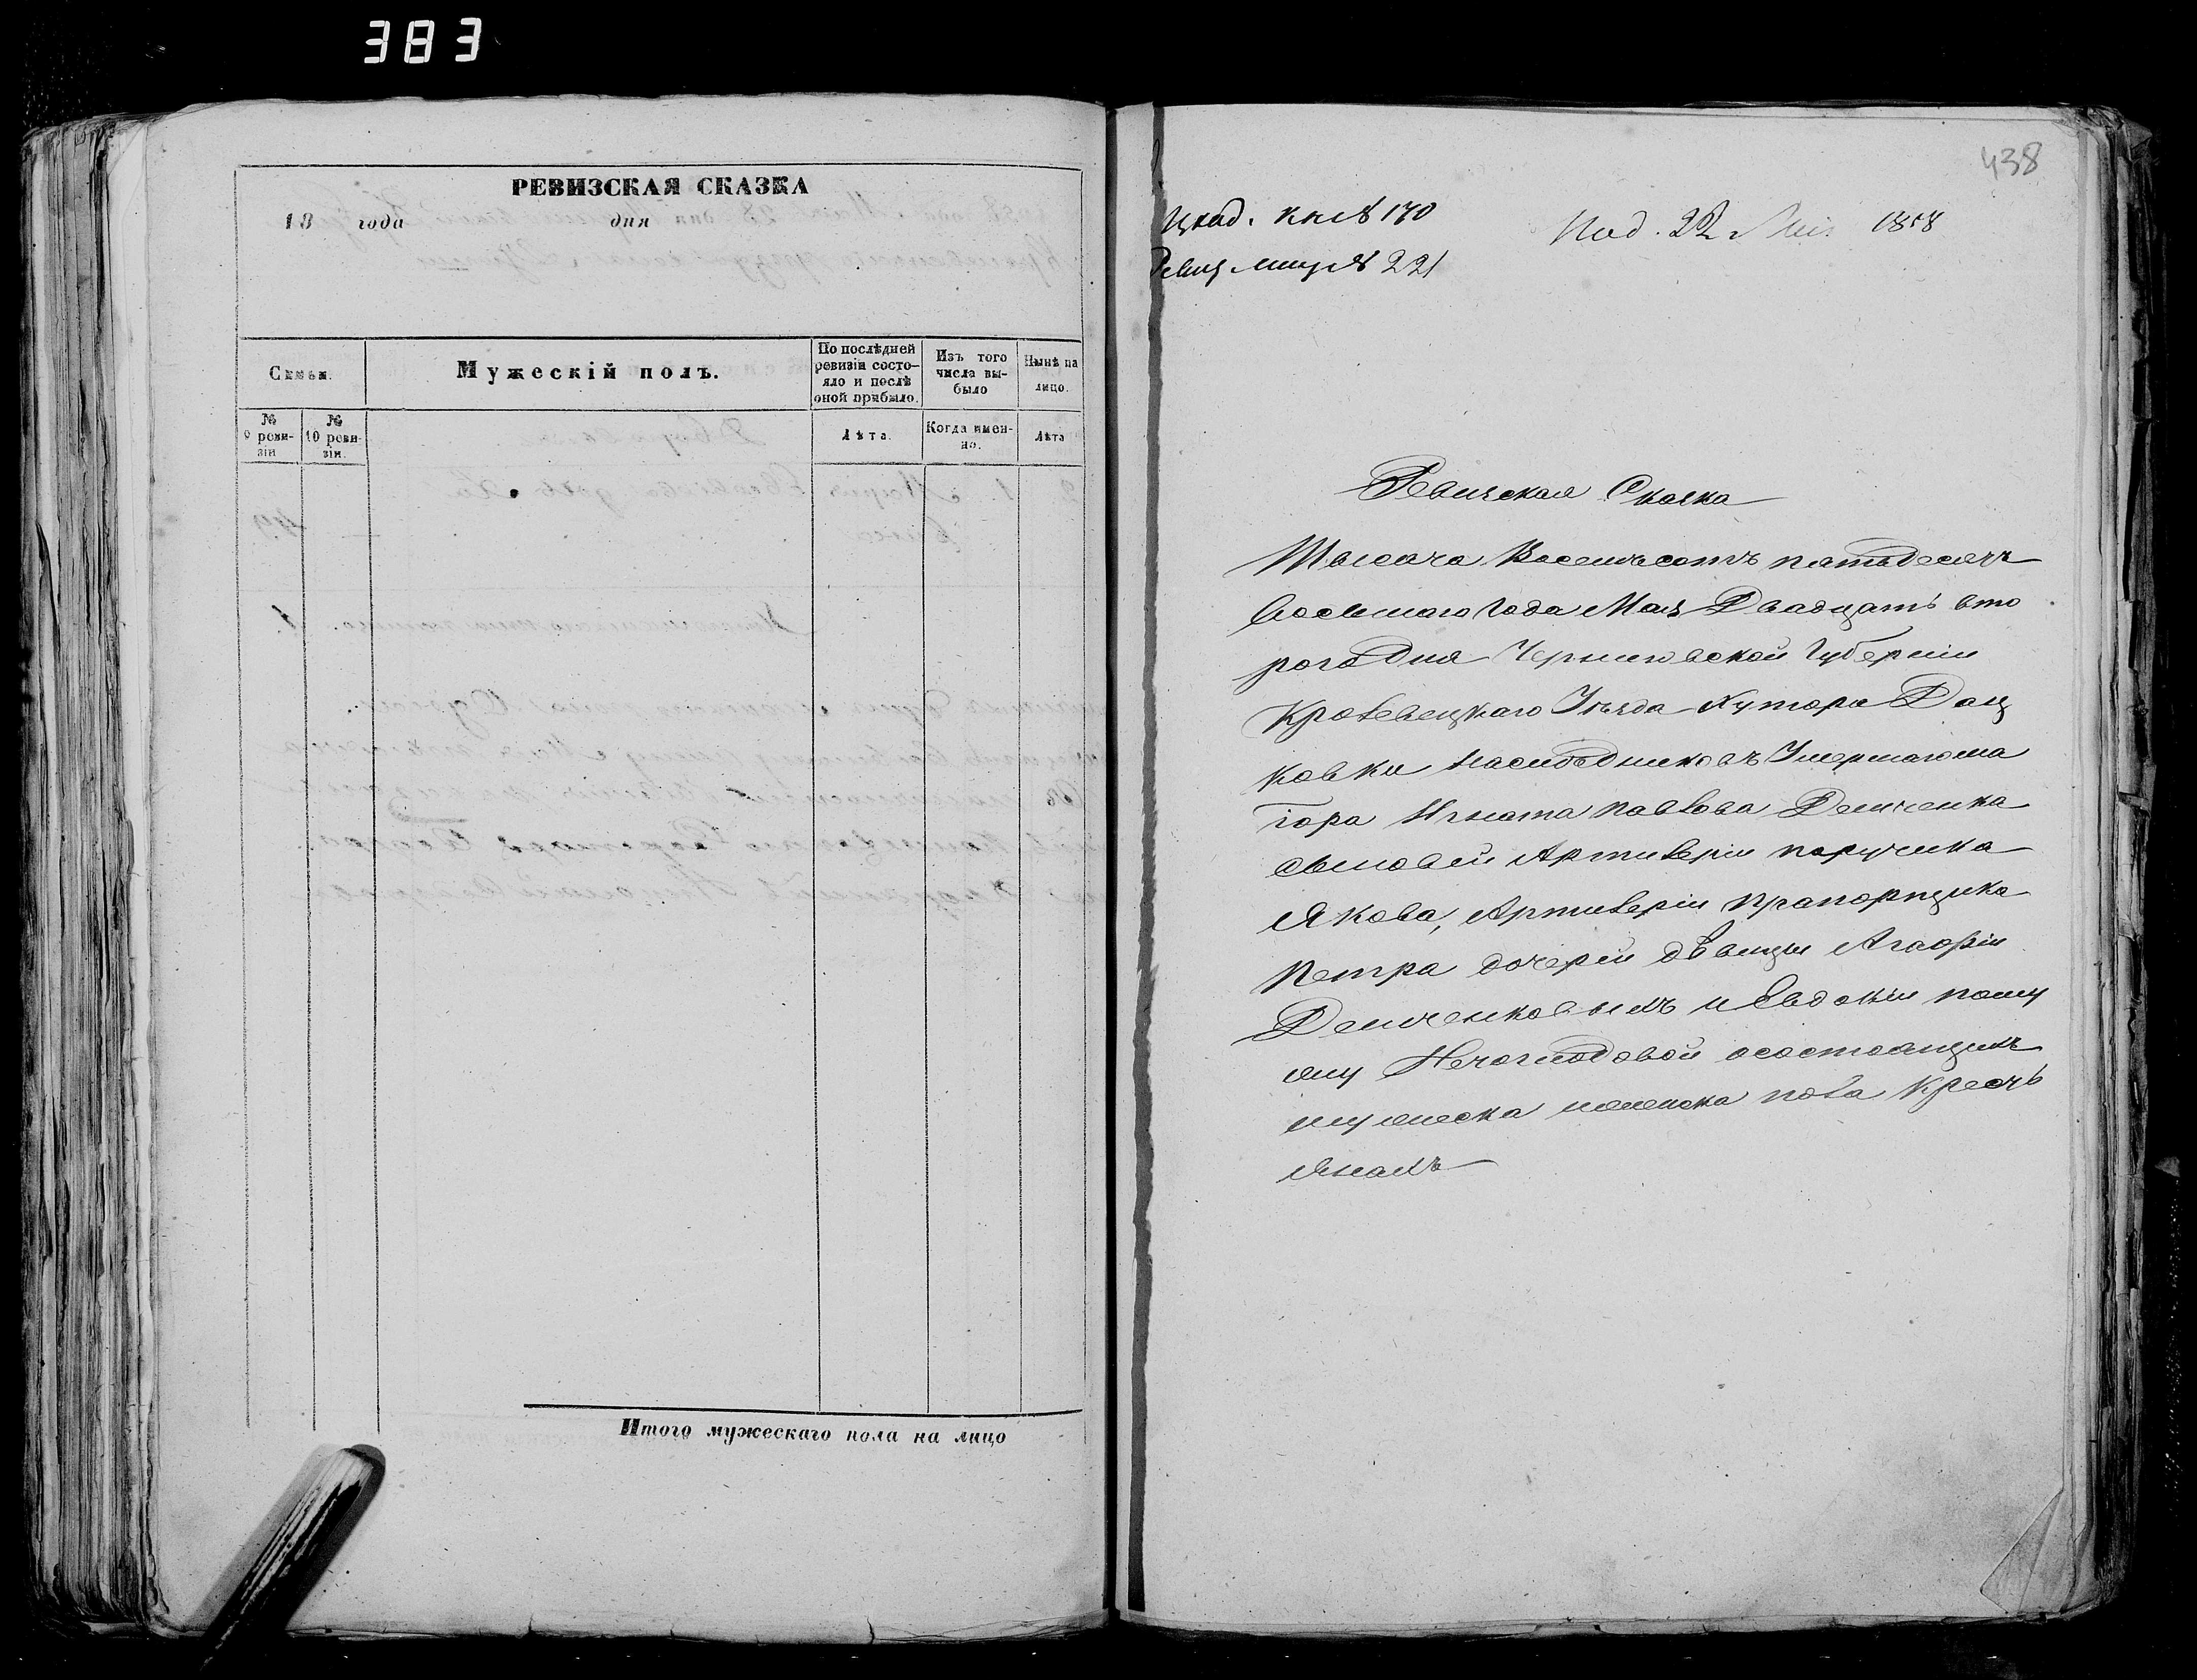 383
РЕВИЗСКАЯ СКАЗКА
18 года дня
Семьи.
Мужескій полъ.
По послѣдней ревизіи состо-
яло и послѣ
оной прибыло.
Изъ того
числа вы-
было
Нынѣ на
лицо.
№
9 реви-
зіи
№
10 реви-
зіи.
Лѣта.
Когда имен-
но.
Лѣта
Итого мужескаго пола на лицо
438
№ 170
Под. 22 Мая 1858
№ 221
Ревизская Сказка
Тысяча Восемьсотъ пятьдесятъ
Восьмаго Года Мая Двадцать вто
рого Дня Черниговской Губерніи
Кролевецкаго Уезда Хутора Дац
ковки наслѣдниковъ Умершаго ма
іора Игната Павлова Демченка
сыновей Артилеріи поручика
Якова, Артилеріи прапорщика
Петра дочерей дѣвицы Агафіи
Демченковыхъ и Евдокіи
осостоящихъ
мужеска женска пола Крестъ
янахъ